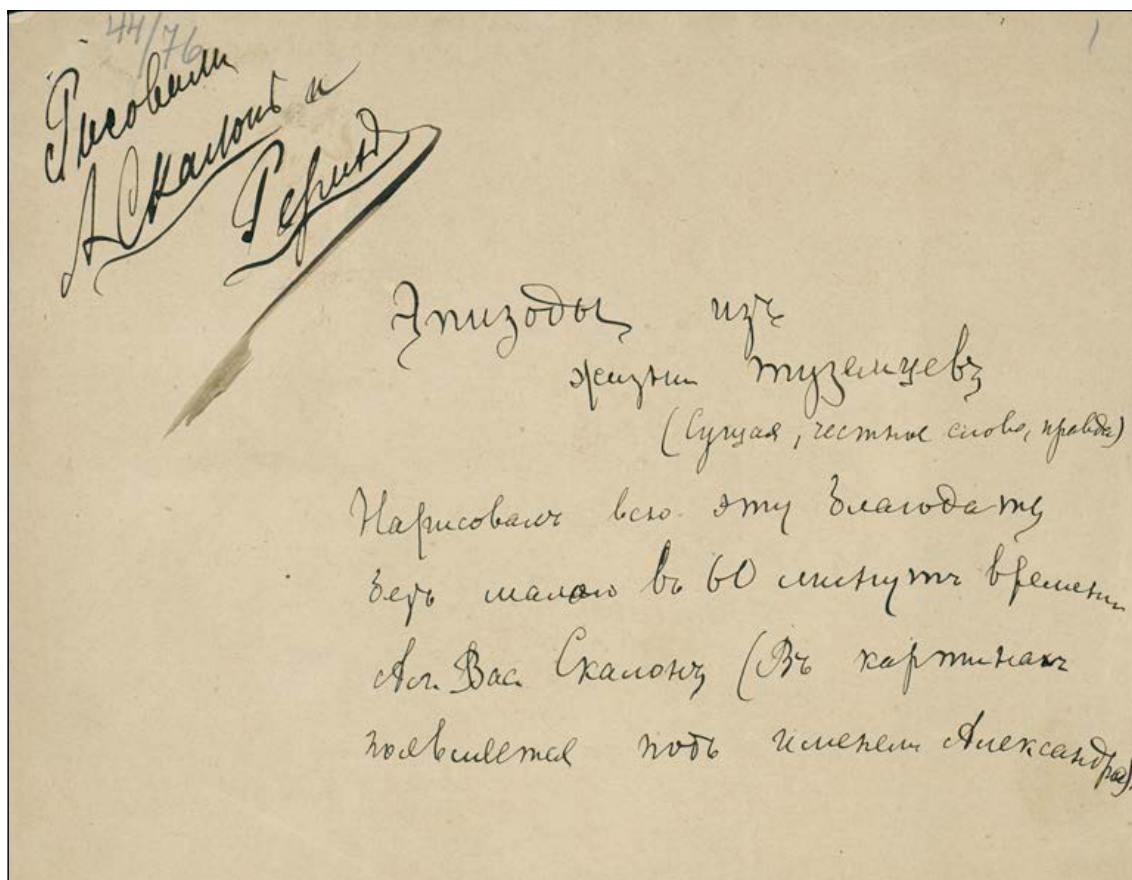 44/76
1
Рисовали
АСкалонъ и
Рерихъ
Эпизоды изъ
жизни туземцевъ
(Сущая, честное слово, правда)
Нарисовалъ всю эту благодать
безъ малаго въ 60 минутъ времени
Ал. Вас. Скалонъ (Въ картинахъ
появляется подъ именем Александра).